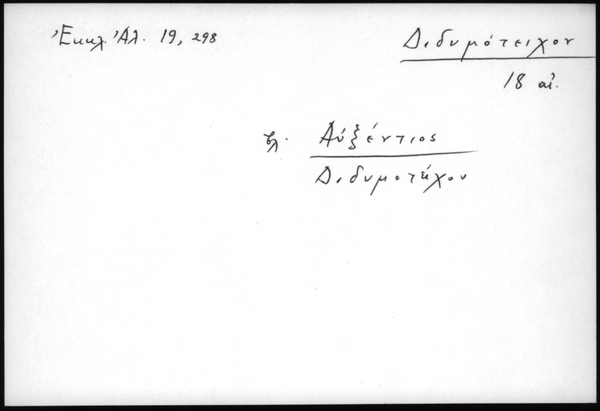 Ἐκκλ. Ἀλ. 19, 298
Διδυμότειχον
18 αἰ.
βλ. Αὐξέντιος
Διδυμοτείχου